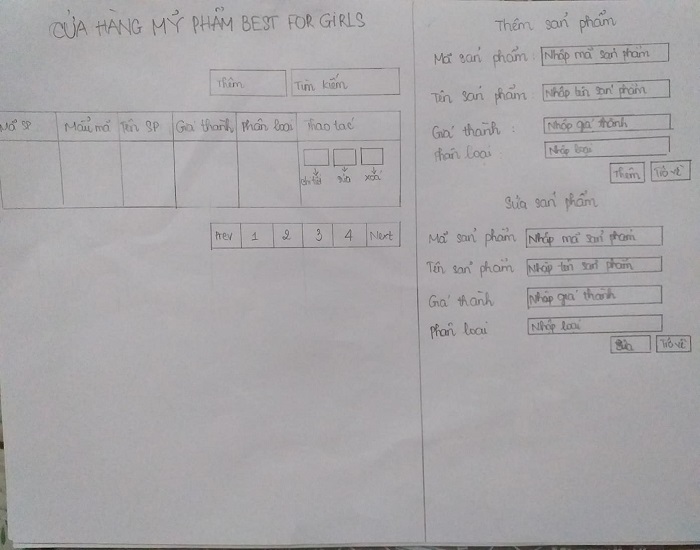 CỬA HÀNG MỸ PHẨM BEST FOR GIRLS
Thêm
Tìm kiếm
Mã SP
Mẫu mã
Tên SP
Giá thành
Phân loại
Thao tác
chi tiết
sửa
xoá
Prev
1
2
3
4
Next
Thêm sản phẩm
Mã sản phẩm :
Nhập mã sản phẩm
Tên sản phẩm :
Nhập tên sản phẩm
Giá thành :
Nhập giá thành
Phân loại :
Nhập loại
Thêm
Trở về
Sửa sản phẩm
Mã sản phẩm
Nhập mã sản phẩm
Tên sản phẩm
Nhập tên sản phẩm
Giá thành
Nhập giá thành
Phân loại
Nhập loại
Sửa
Trở về